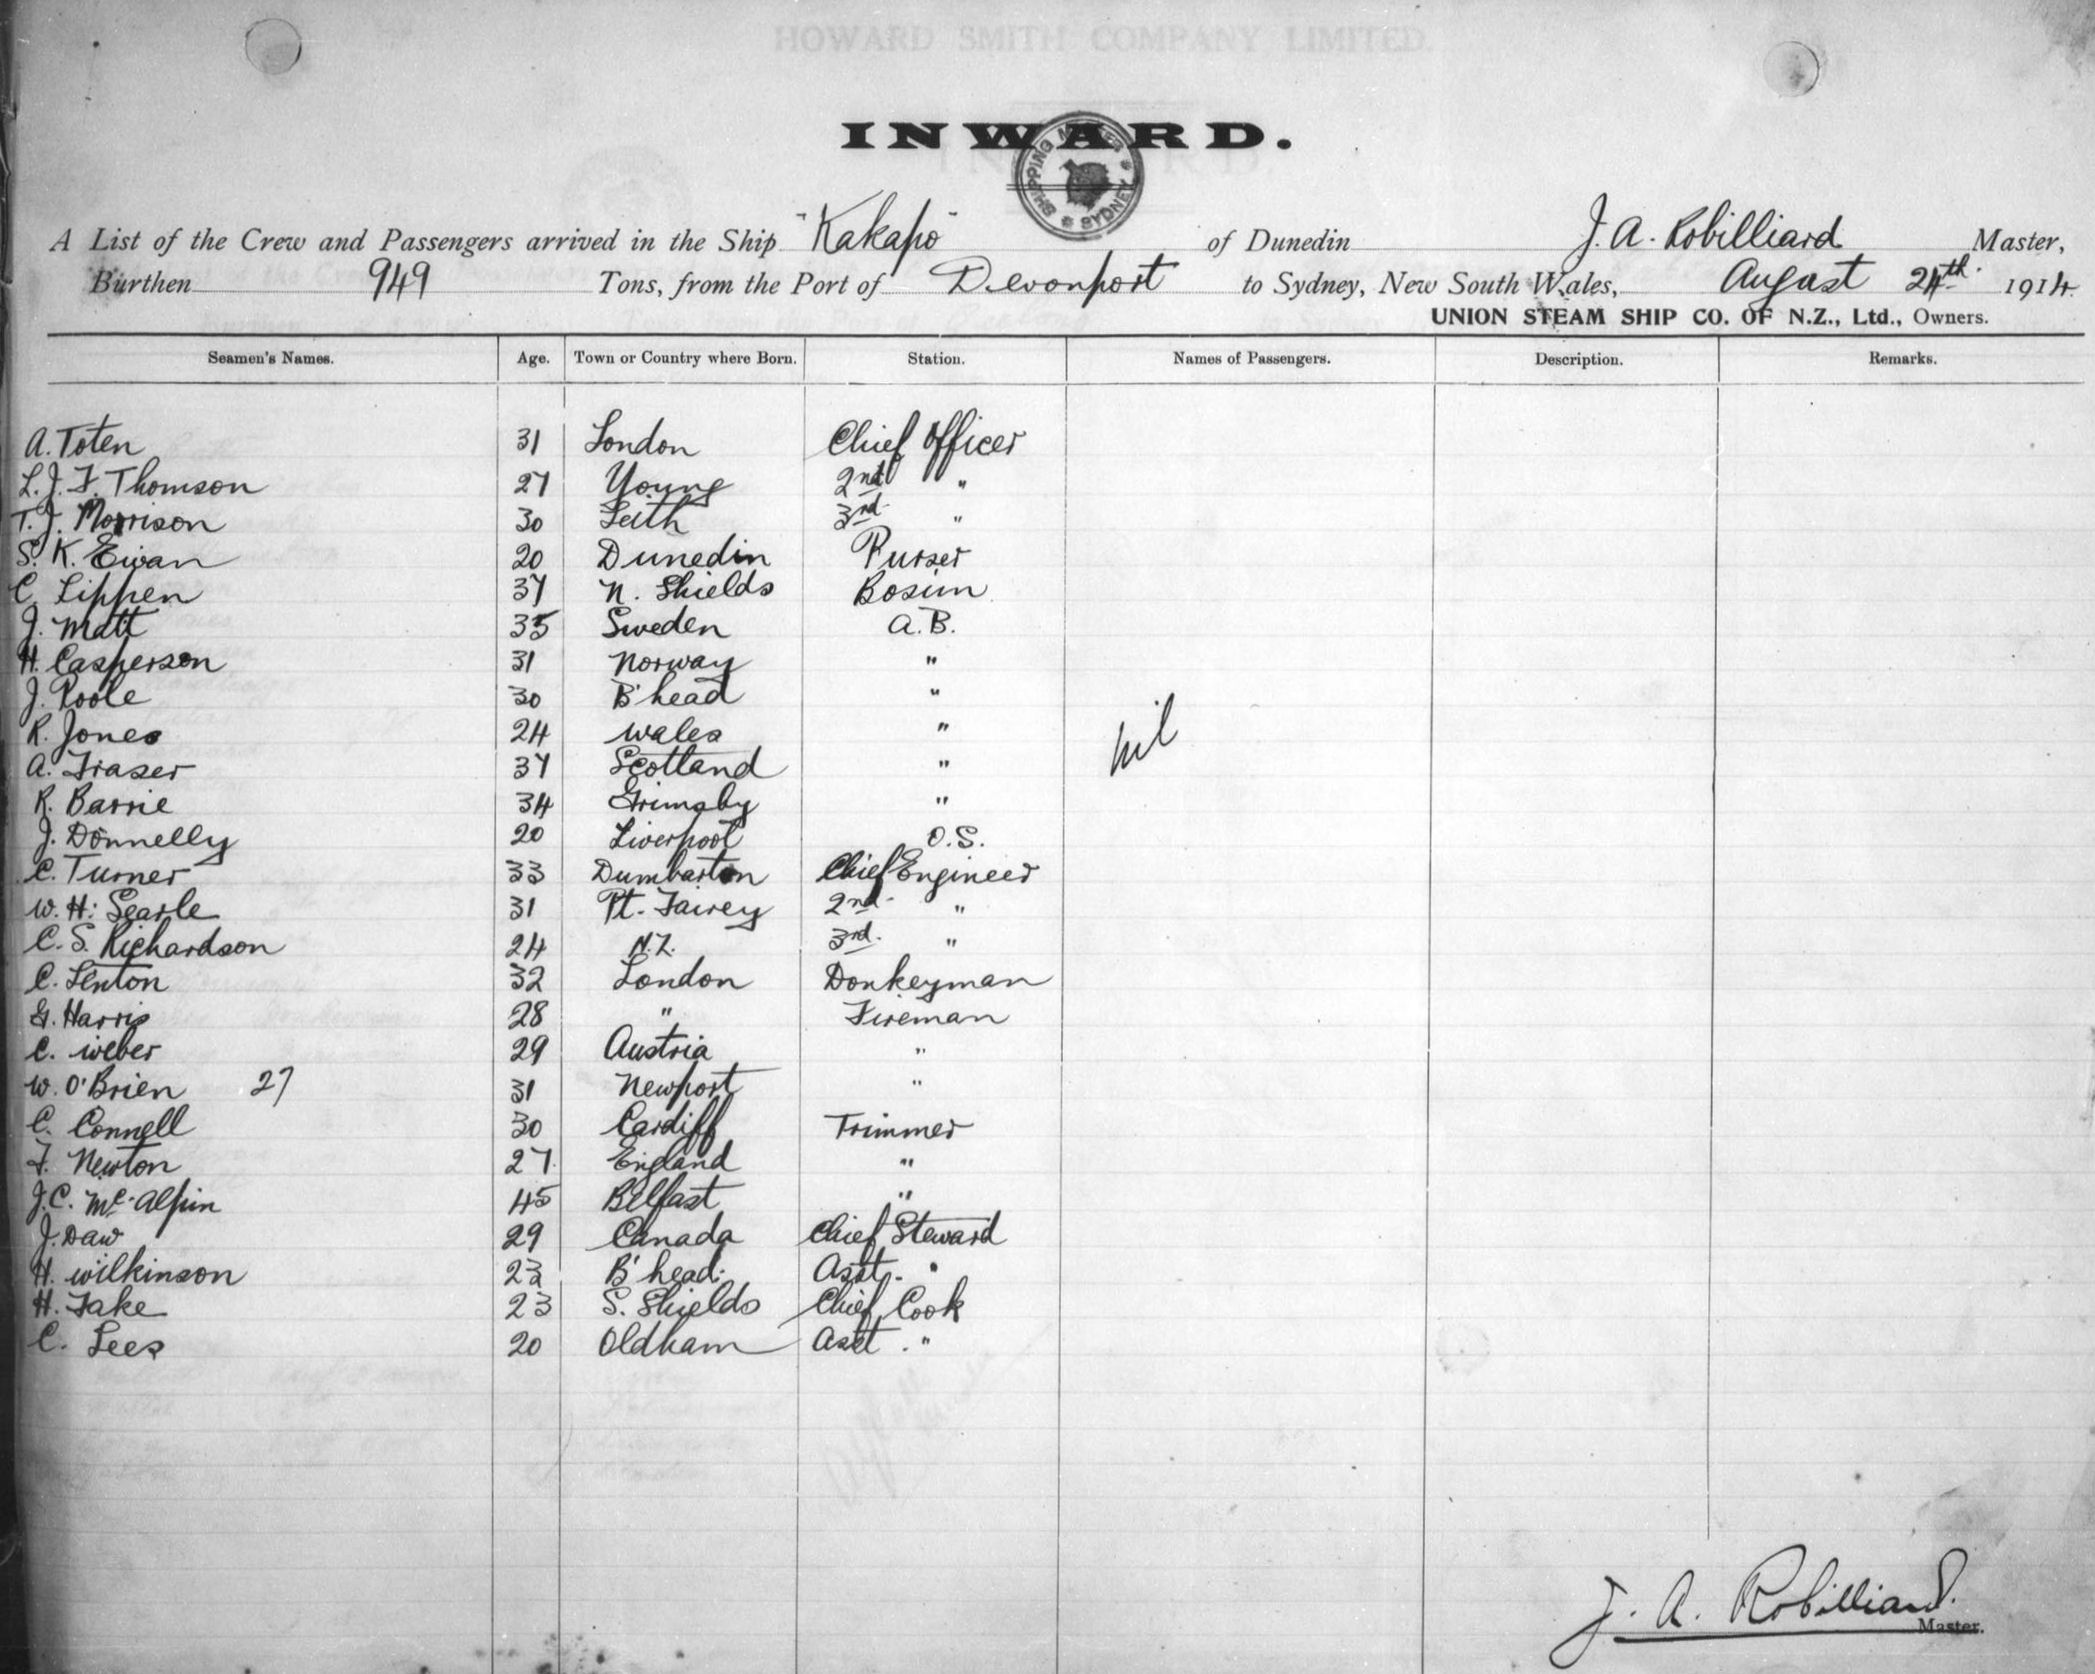 HOWARD SMITH COMPANY LIMITED.
INWARD.
SHIPPING MASTER SYDNEY
A List of the Crew and Passengers arrived in the Ship "Kakapo" of Dunedin J. A. Robilliard Master,
Burthen 949 Tons, from the Port of Devonport to Sydney, New South Wales, August 24th. 1914.
UNION STEAM SHIP CO. OF N.Z., Ltd., Owners.
Seamen's Names. Age. Town or Country where Born. Station. Names of Passengers. Description. Remarks.
A. Toten 31 London Chief Officer
L. J. F. Thomson 27 Young 2nd "
T. J. Morrison 30 Leith 3rd "
S. K. Ewan 20 Dunedin Purser
C. Lippen 37 N. Shields Bosun
J. Matt 35 Sweden A.B.
H. Casperson 31 Norway "
J. Poole 30 B'head "
R. Jones 24 Wales "
nil
A. Fraser 37 Scotland "
R. Barrie 34 Grimsby "
J. Donnelly 20 Liverpool O.S.
C. Turner 33 Dumbarton Chief Engineer
W. H. Searle 31 Pt. Fairey 2nd "
C. S. Richardson 24 N.Z. 3rd. "
C. Lenton 32 London Donkeyman
G. Harris 28 " Fireman
C. Weber 29 Austria "
W. O'Brien 27 31 Newport "
C. Connell 30 Cardiff Trimmer
F. Newton 27 England "
J. C. McAlpin 45 Belfast "
J. Daw 29 Canada Chief Steward
H. Wilkinson 23 B'head. Asst. "
H. Jake 23 S. Shields Chief Cook
C. Lees 20 Oldham Asst. "
J. A. Robilliard.
Master.